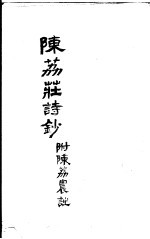 陳荔莊詩鈔
附陳荔農詩